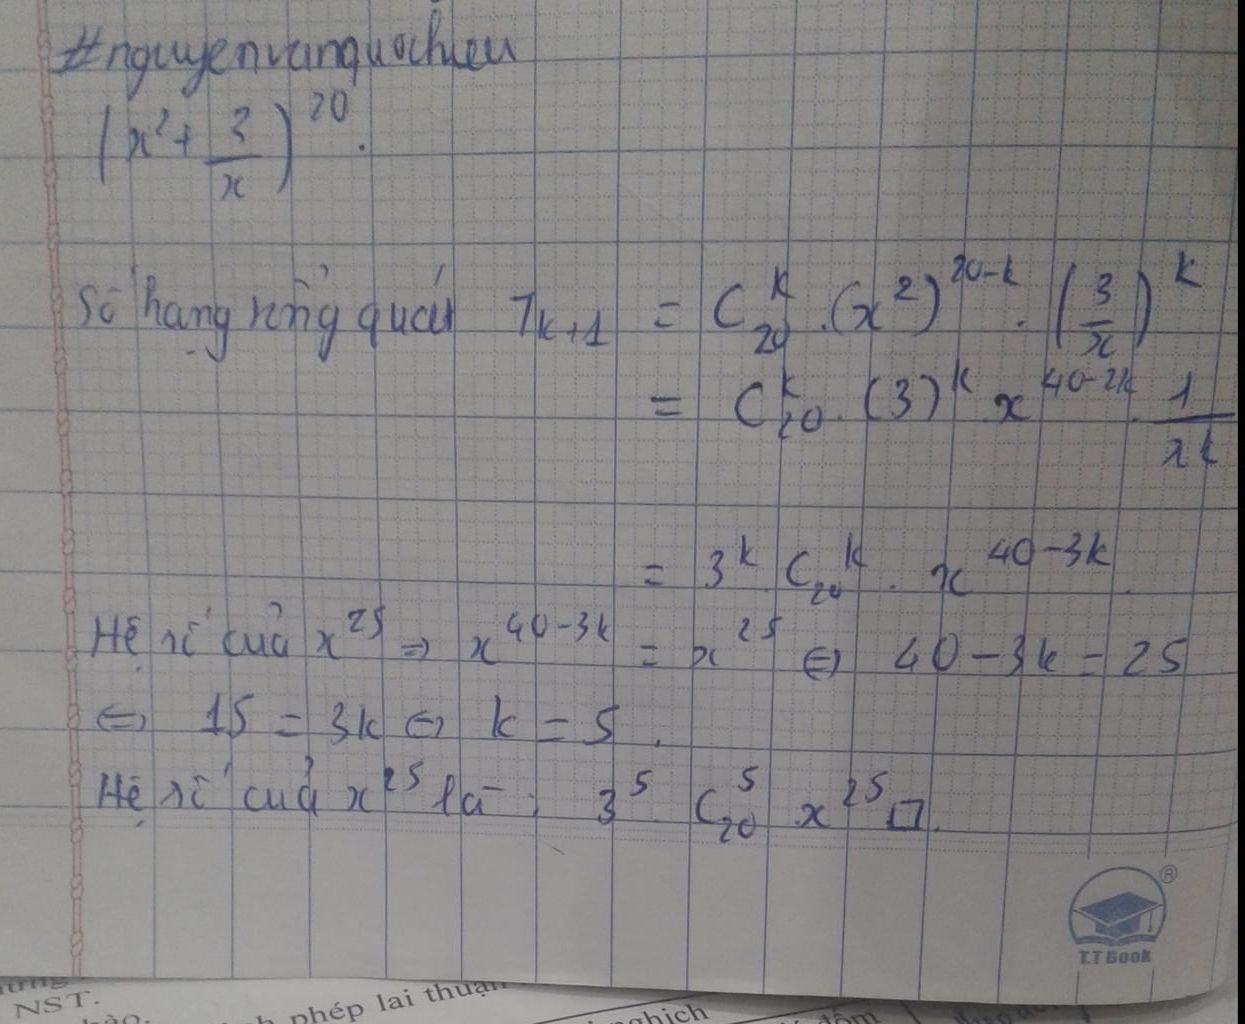 #nguyenvanquochieu
(x² + 3/x)²⁰.
Số hạng tổng quát Tₖ₊₁ = C₂₀ᵏ . (x²)²⁰⁻ᵏ . (3/x)ᵏ
= C₂₀ᵏ . (3)ᵏ x⁴⁰⁻²ᵏ . 1/xᵏ
= 3ᵏ C₂₀ᵏ . x⁴⁰⁻³ᵏ.
Hệ số của x²⁵ ⇒ x⁴⁰⁻³ᵏ = x²⁵ ⇔ 40 - 3k = 25
⇔ 15 = 3k ⇔ k = 5.
Hệ số của x²⁵ là : 3⁵ C₂₀⁵ x²⁵ □.
®
T.T Book
NST.
phép lai thuận
nghịch
đốm